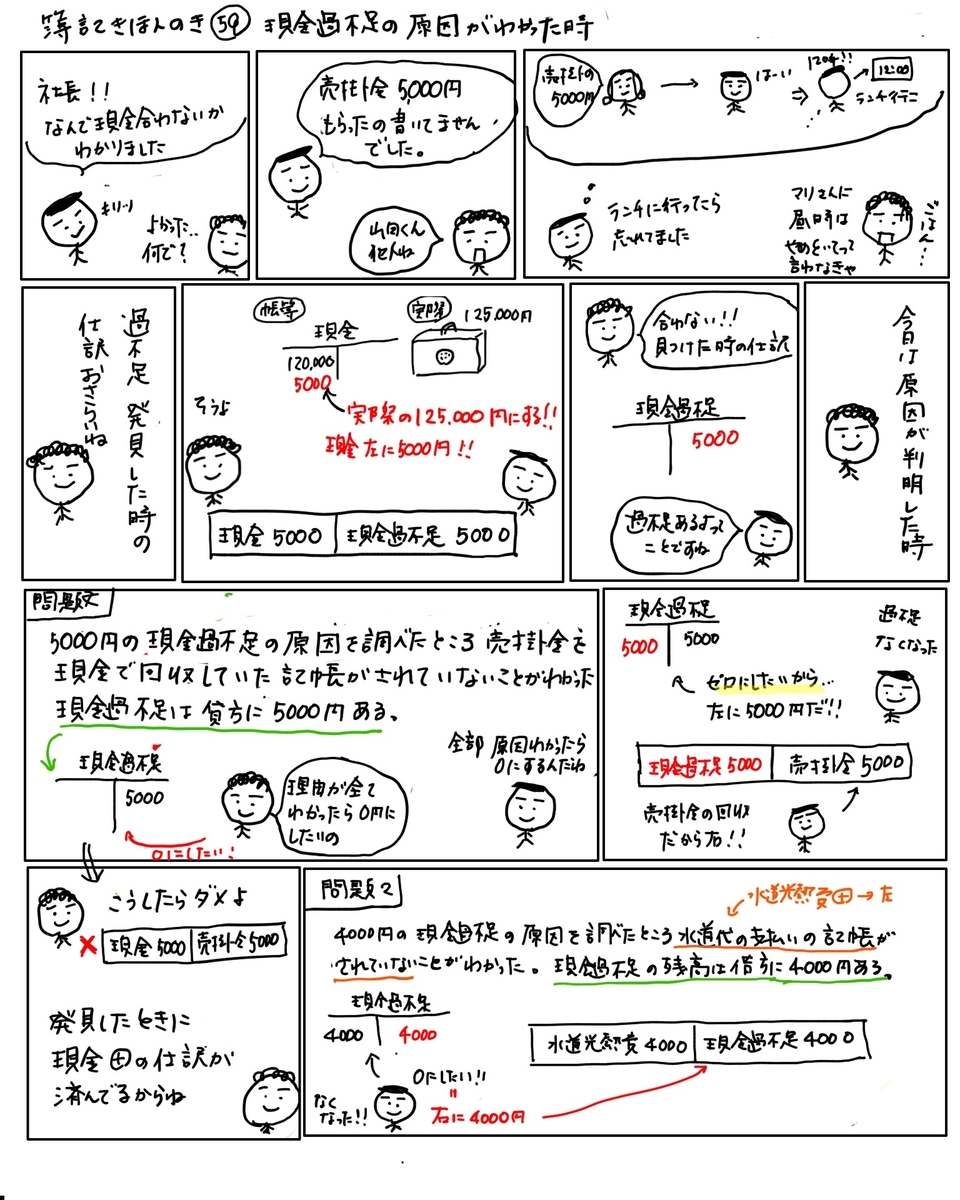 簿記きほんのき59 現金過不足の原因がわかった時
社長!!
なんで現金合わないか
わかりました
キリッ
よかった..
何で?
売掛金5,000円
もらったの書いてません
でした。
山田くん
犯人ね
売掛の
5000円
はーい
12時!!
12:00
ランチ行こ
ランチに行ってたら
忘れてました
マリさんに
昼時は
やめといてって
言わなきゃ
ごはん…
過不足発見した時の
仕訳おさらいね
帳簿
現金
120,000
5000
実際
125,000円
実際の125,000円にする!!
現金左に5000円!!
そうよ
現金5000
現金過不足 5000
合わない!!
見つけた時の仕訳
現金過不足
5000
過不足あるよって
ことですね
今日は原因が判明した時
問題文
5000円の現金過不足の原因を調べたところ売掛金を
現金で回収していた記帳がされていないことがわかった
現金過不足は貸方に5000円ある。
現金過不足
5000
0にしたい!
理由が全て
わかったら0円に
したいの
全部原因わかったら
0にするんだね
現金過不足
5000
5000
過不足
なくなった
ゼロにしたいから…
左に5000円だ!!
現金過不足5000
売掛金5000
売掛金の回収
だから右!!
こうしたらダメよ
現金5000
売掛金5000
発見したときに
現金⊕の仕訳が
済んでるからね
問題2
水道光熱費⊕→左
4000円の現金過不足の原因を調べたところ水道代の支払いの記帳が
されていないことがわかった。現金過不足の残高は借方に4000円ある。
現金過不足
4000
4000
水道光熱費4000
現金過不足4000
なく
なった!!
0にしたい!!
右に4000円